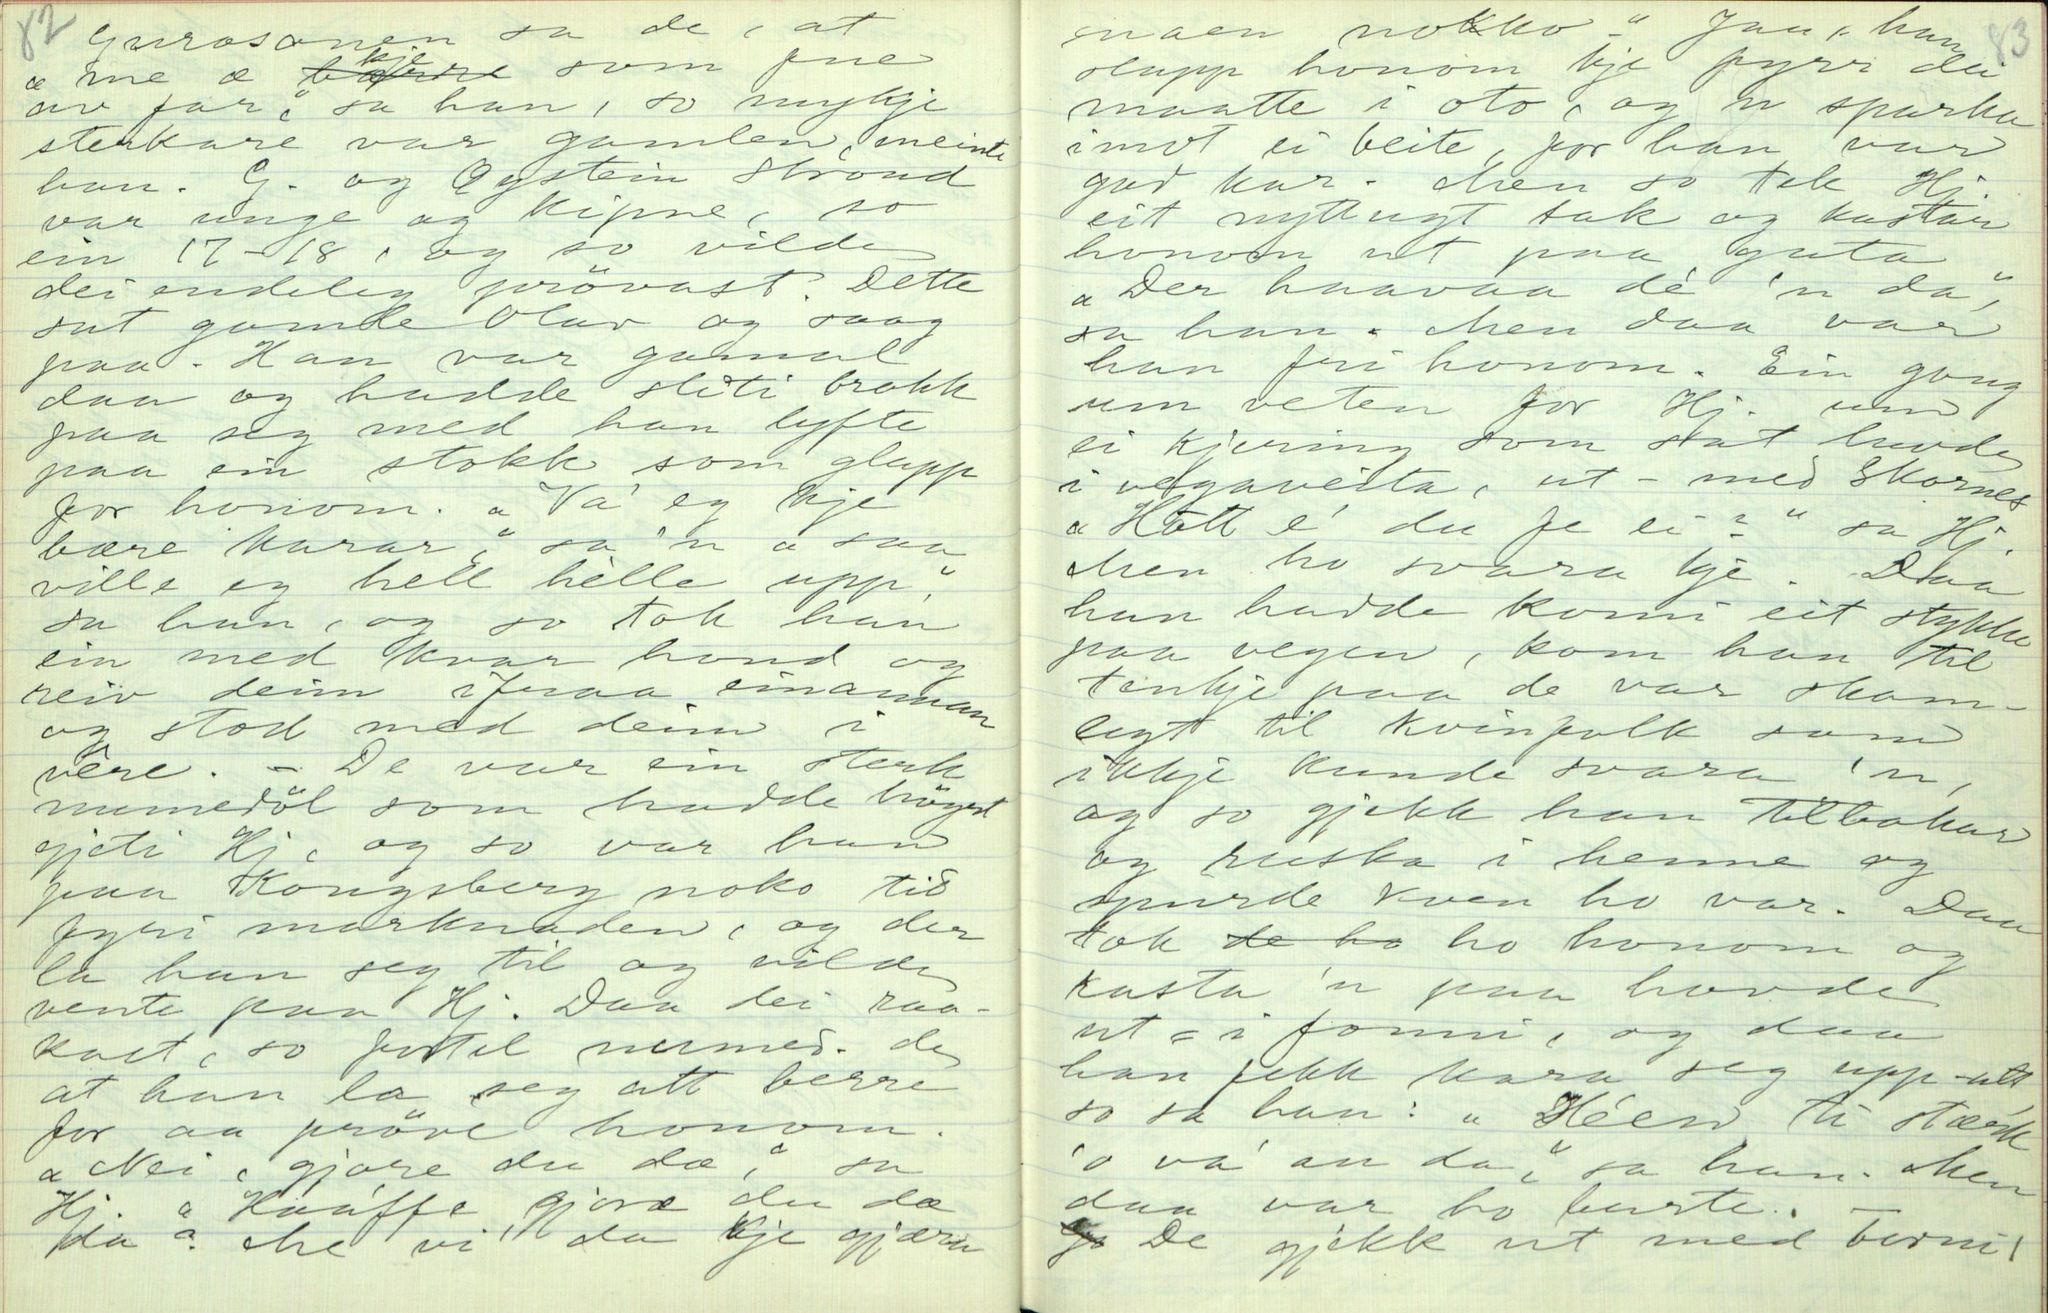 82
Gurosonen sa de, at
"me æ bærre kje som fue
av far," sa han, so mykje
sterkare var gamlen, meinte
han. G. og Øystein Strond
var unge og kipne, so
ein 17-18, og so vilde
dei endeleg prövast. Dette
sat gamle Olav og saag
paa. Han var gamal
daa og hadde sliti brokk
paa seg med han lyfte
paa ein stokk som glapp
for honom. "Va' eg kje
bære karar," sa 'n "saa
ville eg hell hèlle upp,"
sa han, og so tok han
ein med kvar hond og
reiv deim ifraa einannan
og stod med deim i
vêre. - De var ein sterk
numedöl som hadde högst
gjeti Hj, og so var han
paa Kongsberg noko tid
fyri marknaden, og der
la han seg til og vilde
vente paa Hj. Daa dei raa-
kast, so fortel numed. de
at han la seg att berre
for aa pröve honom.
"Nei, gjore du dæ," sa
Hj. "Kaáffe gjore du dæ
da? Me vi' da kje gjæra
83
naen nokko -" Jau, han
slapp honom kje fyrr dei
maatte i oto, og 'n sparka
imot ei beite, for han var
god kar. Men so tok Hj.
eit nyttugt tak og kastar
honom ut paa guta
"Der haavaa dé 'n da",
sa han. Men daa var
han fri honom. Ein gong
um veten for Hj. um
ei kjering som sat burde
i vegaveita, ut-med Skornes
"Hott e' du fe ei?" sa Hj.
Men ho svara kje. Daa
han hadde komi eit stykke
paa vegen, kom han til
tenkje paa de var skam-
legt til kvinfolk som
ikkje kunde svara 'n,
og so gjekk han tilbakar
og ruska i henne og
spurde kven ho var. Daa
tok de ho ho honom og
kasta 'n paa hovde
ut = i fonni, og daa
han fekk kara seg upp-att
so sa han: "Héen ti stærk
'o va' an da," sa han. Men
daa var ho burte. —
De gjekk ut med borni